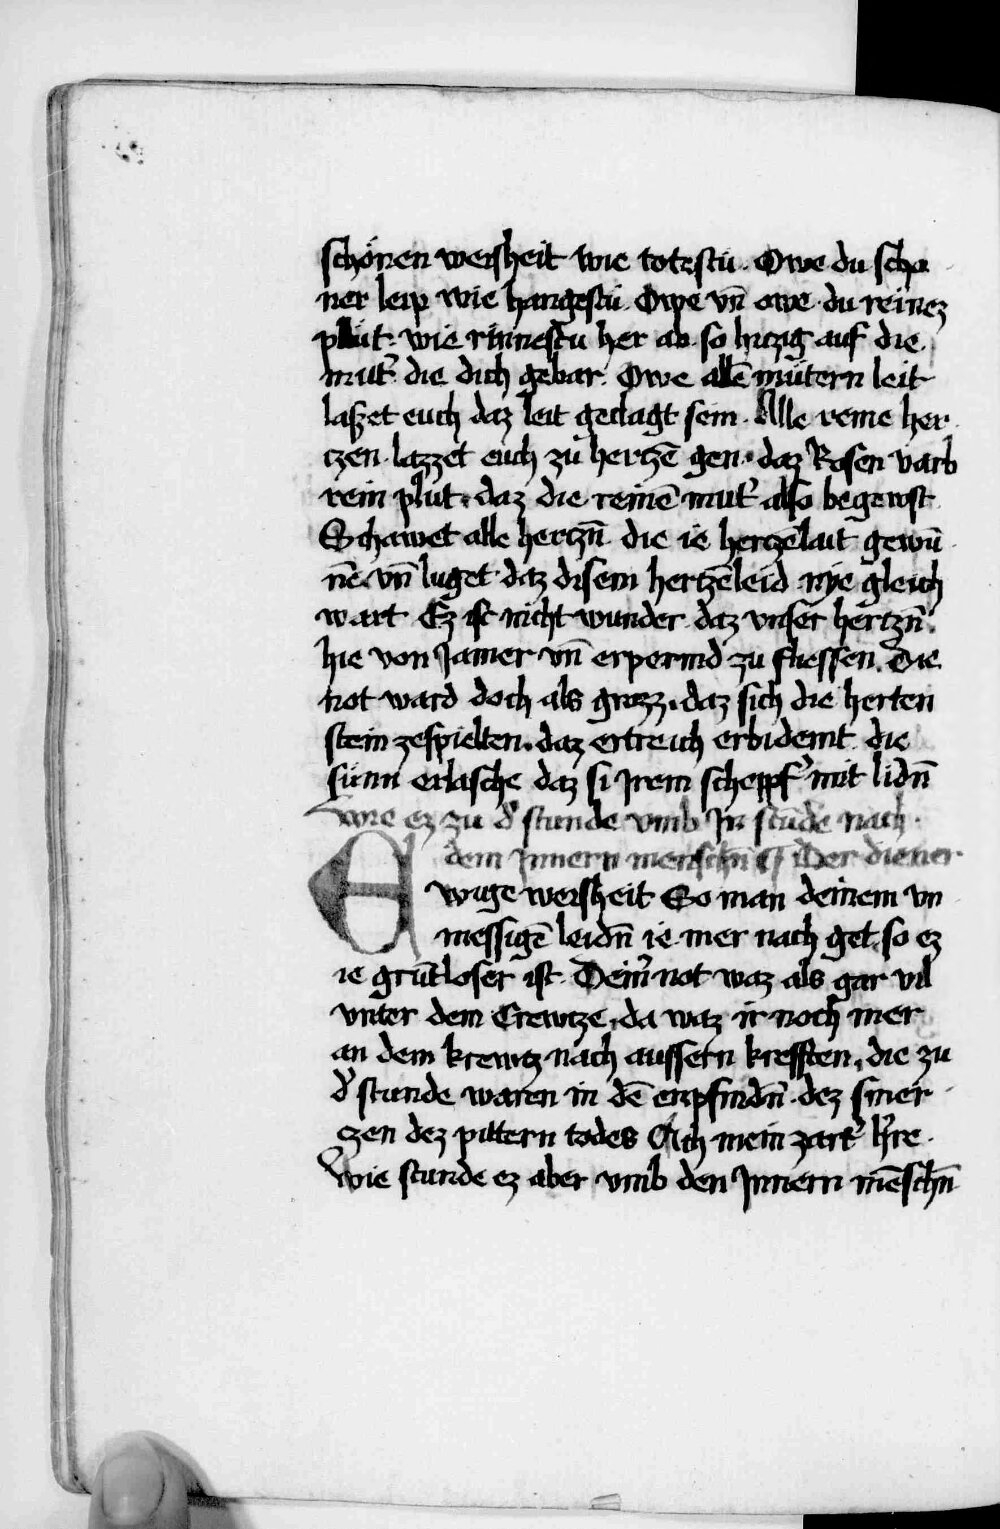 schönen weisheit wie totestu. Owe du scho
ner leip wie hangestu. Owe vn̄ owe. du reinez
plut. wie rinnestu her ab. so hiczig auf die
mut᾽. die dich gebar. Owe allē mütern leit
laßet euch daz leit geclagt sein. Alle reine her
tzen. lazzet euch zu hertzē gen. daz Rosen varb
rein plut. daz die reinē mut᾽ also begewst
Schawet alle hertzn̄ die ie hertzēlait gewū
nē. vn̄ luget daz disem hertzēleid nye gleich
wart Ez ist nicht wunder daz vnser hertzn̄
hie von Jamer vn̄ erpermd zu fliessen. Die
not ward doch als grozz. daz sich die herten
stein zespielten. daz ertreich erbidemt die
sunn erlasche daz si Jrem schepf᾽ mit lidn̄
Wie ez zu d᾽ stunde vmb Jn stūde nach
dem Jnnern menschn̄ ¶ Der diener
Ewige weisheit So man deinem vn
messigē leidn̄ ie mer nach get. so ez
ie grūtloser ist. Dein᾽ not waz als gar vil
vnter dem Crewtze. da waz ir noch mer
an dem krewtz nach aussern krefften. die zu
d᾽ stunde waren in dē enpfindn̄. dez smer
zen dez pittern todes Ach mein zart᾽ h᾽re.
Wie stunde ez aber vmb den Jnnern mēschn̄